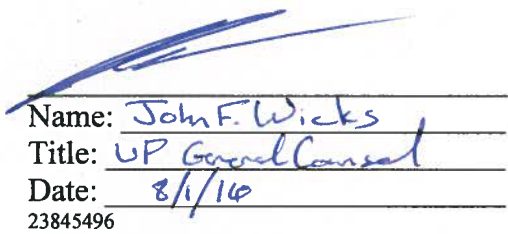 Name: John F. Wicks
Title: VP General Counsel
Date: 8/1/16
23845496